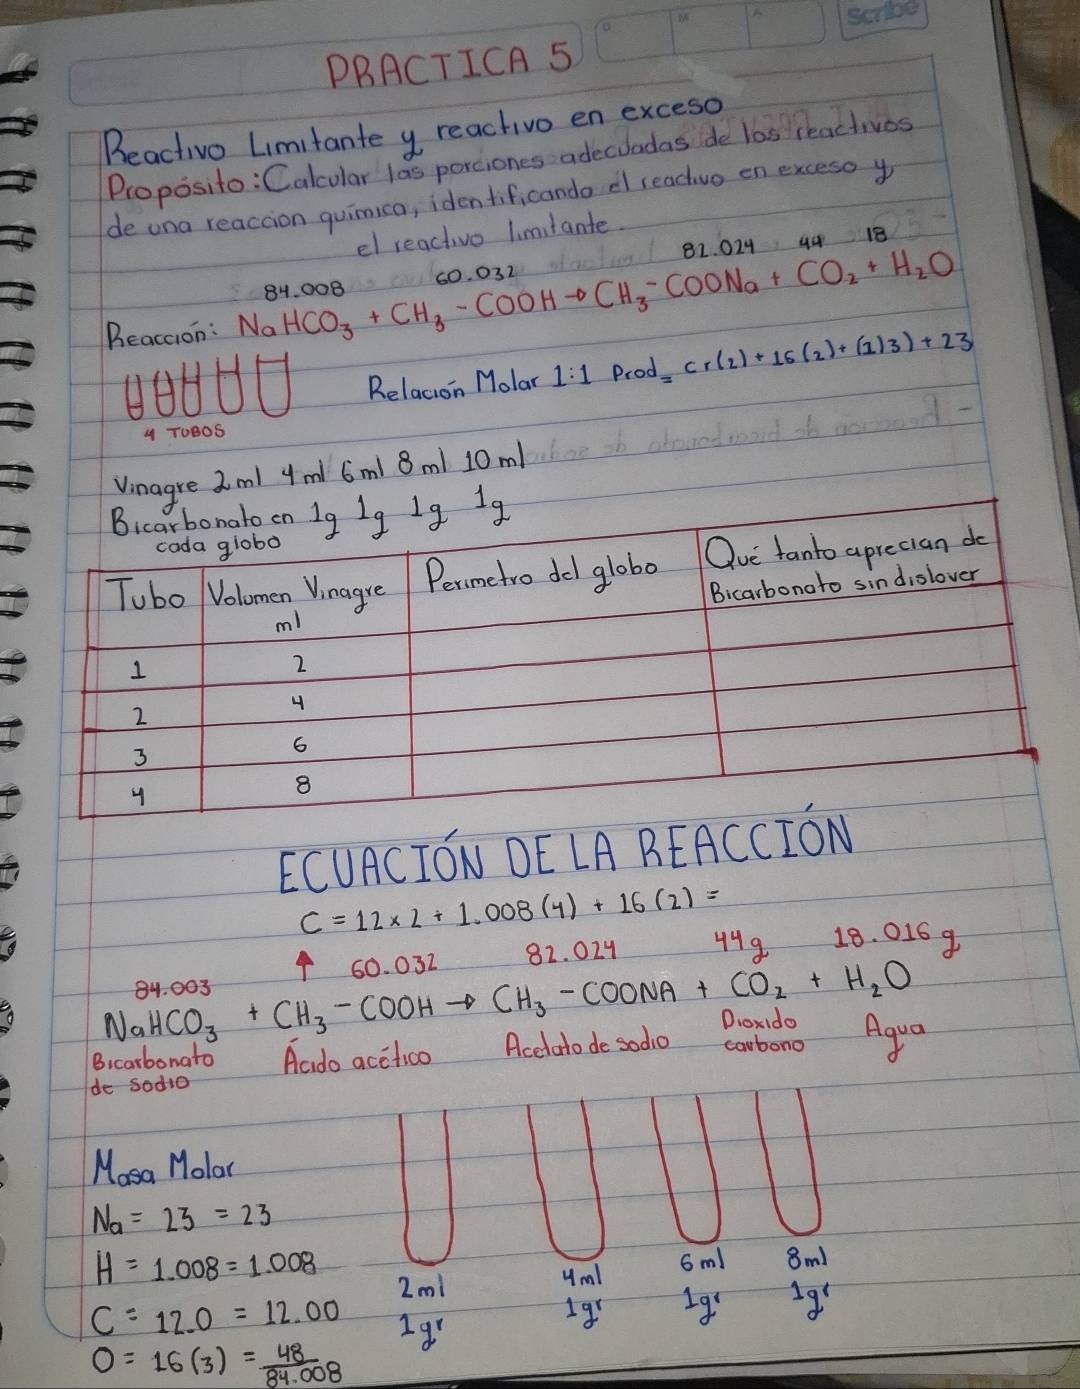 Scribe
D M A
PRACTICA 5
Reactivo Limitante y reactivo en exceso
Propósito: Calcular las porciones adecuadas de los reactivos
de una reaccion química, identificando el reactivo en exceso y
el reactivo limitante.
84.008 60.032 82.024 44 18
Reacción: NaHCO₃ + CH₃ - COOH → CH₃ - COONa + CO₂ + H₂O
Relación Molar 1:1 Prod = Cr(2) + 16(2) + (1)3) + 23
4 TUBOS
Vinagre 2ml 4ml 6ml 8ml 10ml
Bicarbonato en 1g 1g 1g 1g
cada globo
Tubo Volumen Vinagre Perimetro del globo Qué tanto aprecian de
ml Bicarbonato sin dislover
1 2
2 4
3 6
4 8
ECUACIÓN DE LA REACCIÓN
C = 12 x 2 + 1.008 (4) + 16 (2) =
84.003 ↑ 60.032 82.024 44g 18.016g
NaHCO₃ + CH₃ - COOH → CH₃ - COONA + CO₂ + H₂O
Bicarbonato Ácido acético Acetato de sodio Dioxido Agua
de sodio carbono
Masa Molar
Na = 23 = 23
H = 1.008 = 1.008
C = 12.0 = 12.00
O = 16 (3) = 48
84.008
2ml 4ml 6ml 8ml
1gr 1gr 1gr 1gr